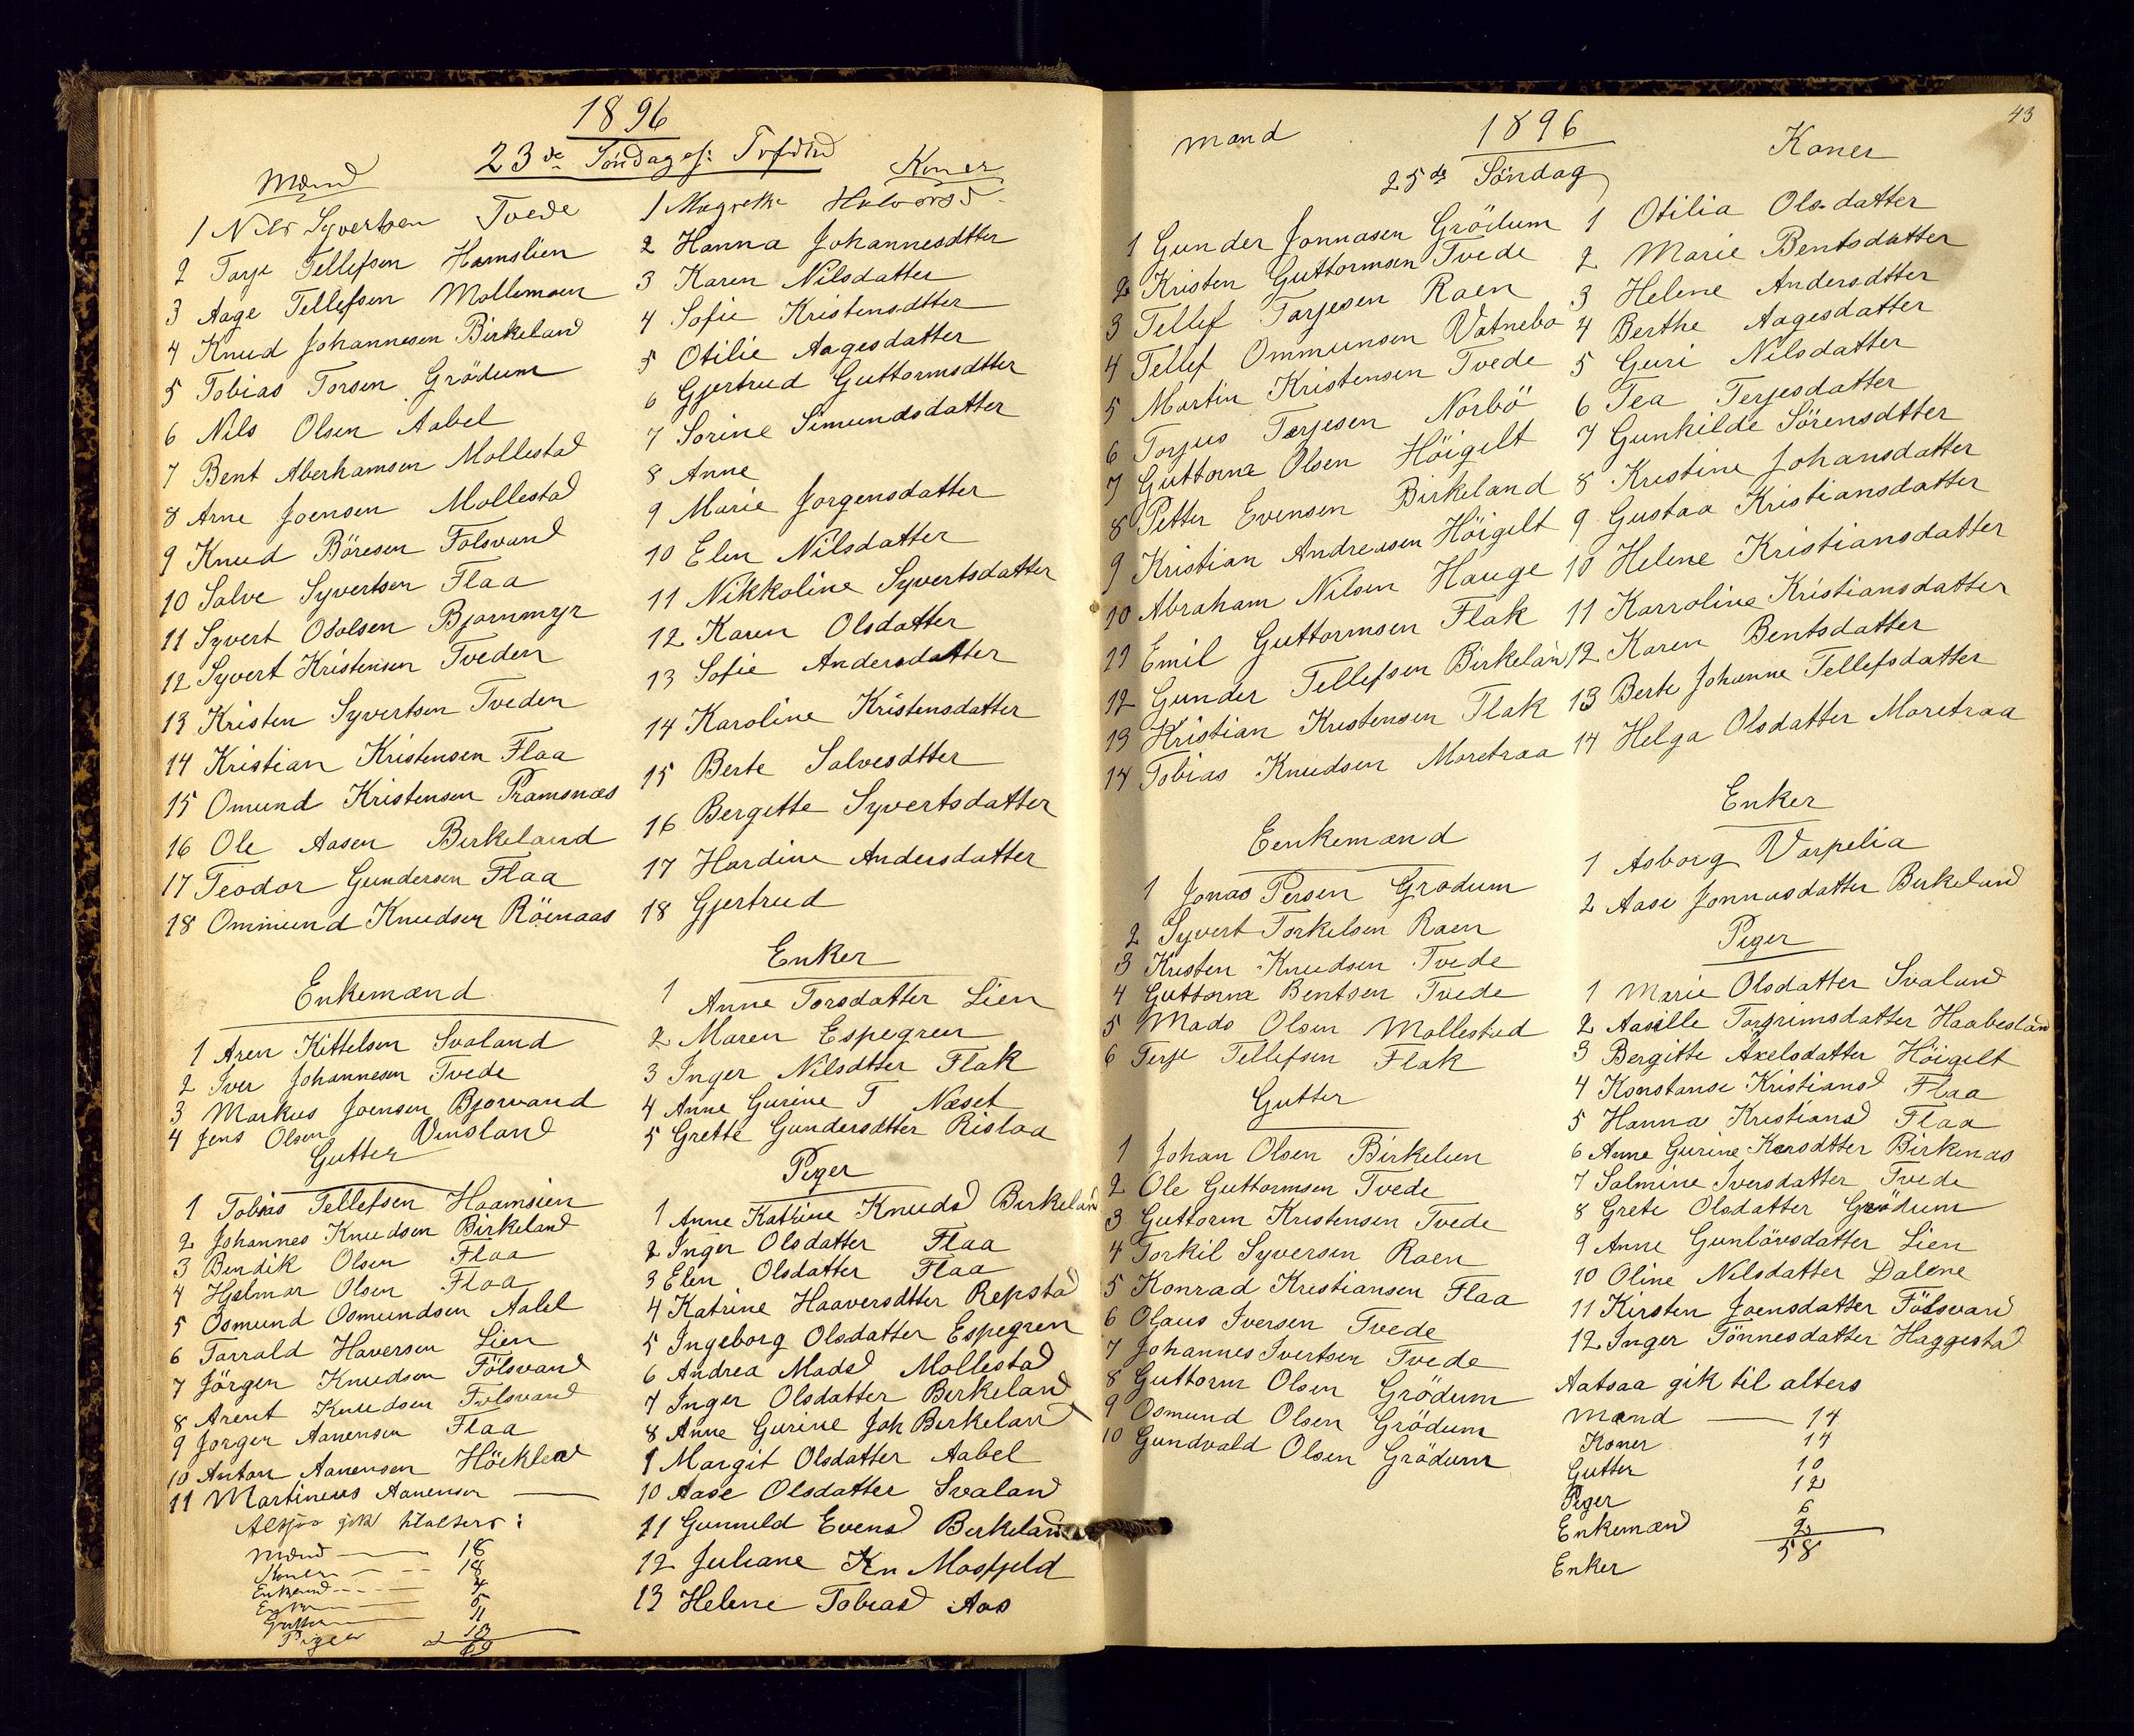 1896
23de Söndag ef:
Mænd
1 Nils Syvertsen Tvede
2 Tarje Tellefsen Hamslien
3 Aage Tellefsen Mollemoen
4 Knud Johannesen Birkeland
5 Tobias Torsen Grödum
6 Nils Olsen Aabel
7 Bent Aberhamsen Mollestad
8 Arne Joensen Mollestad
9 Knud Böresen Fölsvand
10 Salve Syvertsen Flaa
11 Syvert Bjornmyr
12 Syvert Kristensen Tveden
13 Kristen Syvertsen Tveden
14 Kristian Kristensen Flaa
15 Omund Kristensen Pramsnæs
16 Ole Aasen Birkeland
17 Teodor Gundersen Flaa
18 Ommund Knudsen Röinaas
Enkemænd
1 Aren Kittelsen Svaland
2 Iver Johannesen Tvede
3 Markus Joensen Bjorvand
4 Jens Olsen Vinsland
Gutter
1 Tobias Tellefsen Haamsien
2 Johannes Knudsen Birkeland
3 Bendik Olsen Flaa
4 Hjelmar Olsen Flaa
5 Osmund Osmundsen Aabel
6 Tarrald Haversen Lien
7 Jörgen Knudsen Fölsvand
8 Arent Knudsen Fölsvand
9 Jorgen Aanensen Flaa
10 Anton Aanensen
11 Martineus Aanensen
Altsaa gik til alters:
Mænd 18
Koner 18
Enkemd 4
Enker 5
Gutter 11
Piger 13
69
Koner
1 Magrethe Halvorsd
2 Hanna Johannesdtter
3 Karen Nilsdatter
4 Sofie Kristensdtter
5 Otilie Aagesdatter
6 Gjertrud Guttormsdtter
7 Sorine Simundsdatter
8 Anne
9 Marie Jorgensdatter
10 Elen Nilsdatter
11 Nikkoline Syvertsdatter
12 Karen Olsdatter
13 Sofie Andersdatter
14 Karoline Kristensdatter
15 Berte Salvesdtter
16 Bergitte Syvertsdatter
17 Hardine Andersdatter
18 Gjertrud
Enker
1 Anne Torsdatter Lien
2 Maren Espegren
3 Inger Nilsdtter Flak
4 Anne Gurine T Næset
5 Grette Gundersdtter Rislaa
Piger
1 Anne Katrine Knudsd Birkeland
2 Inger Olsdatter Flaa
3 Elen Olsdatter Flaa
4 Katrine Haaversdtter Repstad
5 Ingeborg Olsdatter Espegren
6 Andrea Madsd Mollestad
7 Inger Olsdatter Berkeland
8 Anne Gurine Joh Berkeland
9 Margit Olsdatter Aabel
10 Aase Olsdatter Svaland
11 Gunnild Evensd Berkeland
12 Juliane Kn Mosfjeld
13 Helene Tobiasd Aas
43
1896
25de Söndag
Mænd
1 Gunder Jonnasen Grödum
2 Kristen Guttormsen Tvede
3 Tellef Tarjesen Raen
4 Tellef Ommunsen Vatnebo
5 Martin Kristensen Tvede
6 Torjus Terjesen Norbö
7 Guttorm Olsen Höigilt
8 Petter Evensen Birkeland
9 Kristian Andreasen Höigilt
10 Abraham Nilsen Hauge
11 Emil Guttormsen Flak
12 Gunder Tellefsen Birkeland
13 Kristian Kristensen Flak
14 Tobias Knudsen Moretraa
Eenkemænd
1 Jonas Persen Grodum
2 Syvert Torkelsen Raen
3 Kristen Knudsen Tvede
4 Guttorm Bentsen Tvede
5 Mads Olsen Mollestad
6 Terje Tellefsen Flak
Gutter
1 Johan Olsen Birkelien
2 Ole Guttormsen Tvede
3 Guttorm Kristensen Tvede
4 Torkil Syversen Raen
5 Konrad Kristiansen Flaa
6 Olaus Iversen Tvede
7 Johannes Ivertsen Tvede
8 Guttorm Olsen Grödum
9 Osmund Olsen Grödum
10 Gundvald Olsen Grödum
Koner
1 Otilia Olsdatter
2 Marie Bentsdatter
3 Helene Andersdtter
4 Berthe Aagesdatter
5 Guri Nilsdatter
6 Tea Terjesdatter
7 Gunhilde Sörensdtter
8 Kristine Johansdatter
9 Gustaa Kristiansdatter
10 Helene Kristiansdatter
11 Karroline Kristiansdatter
12 Karen Bentsdatter
13 Berte Johanne Tellefsdatter
14 Helga Olsdatter Moretraa
Enker
1 Asborg Varpelia
2 Aase Jonnasdatter Birkeland
Piger
1 Marie Olsdatter Svaland
2 Aasille Torgrimsdatter Haabesland
3 Bergitte Axelsdatter Höigilt
4 Konstanse Kristiansd Flaa
5 Hanna Kristiansd Flaa
6 Anne Gurine Larsdtter Birkenas
7 Salmine Iversdatter Tvede
8 Grete Olsdatter Grödum
9 Anne Gunlövsdatter Lien
10 Oline Nilsdatter Dalene
11 Kirsten Joensdatter Fölsvand
12 Inger Tönnesdatter Haggestad
Aatsaa gik til alters
Mænd 14
Koner 14
Gutter 10
Piger 12
Enkemænd 6
Enker 2
58